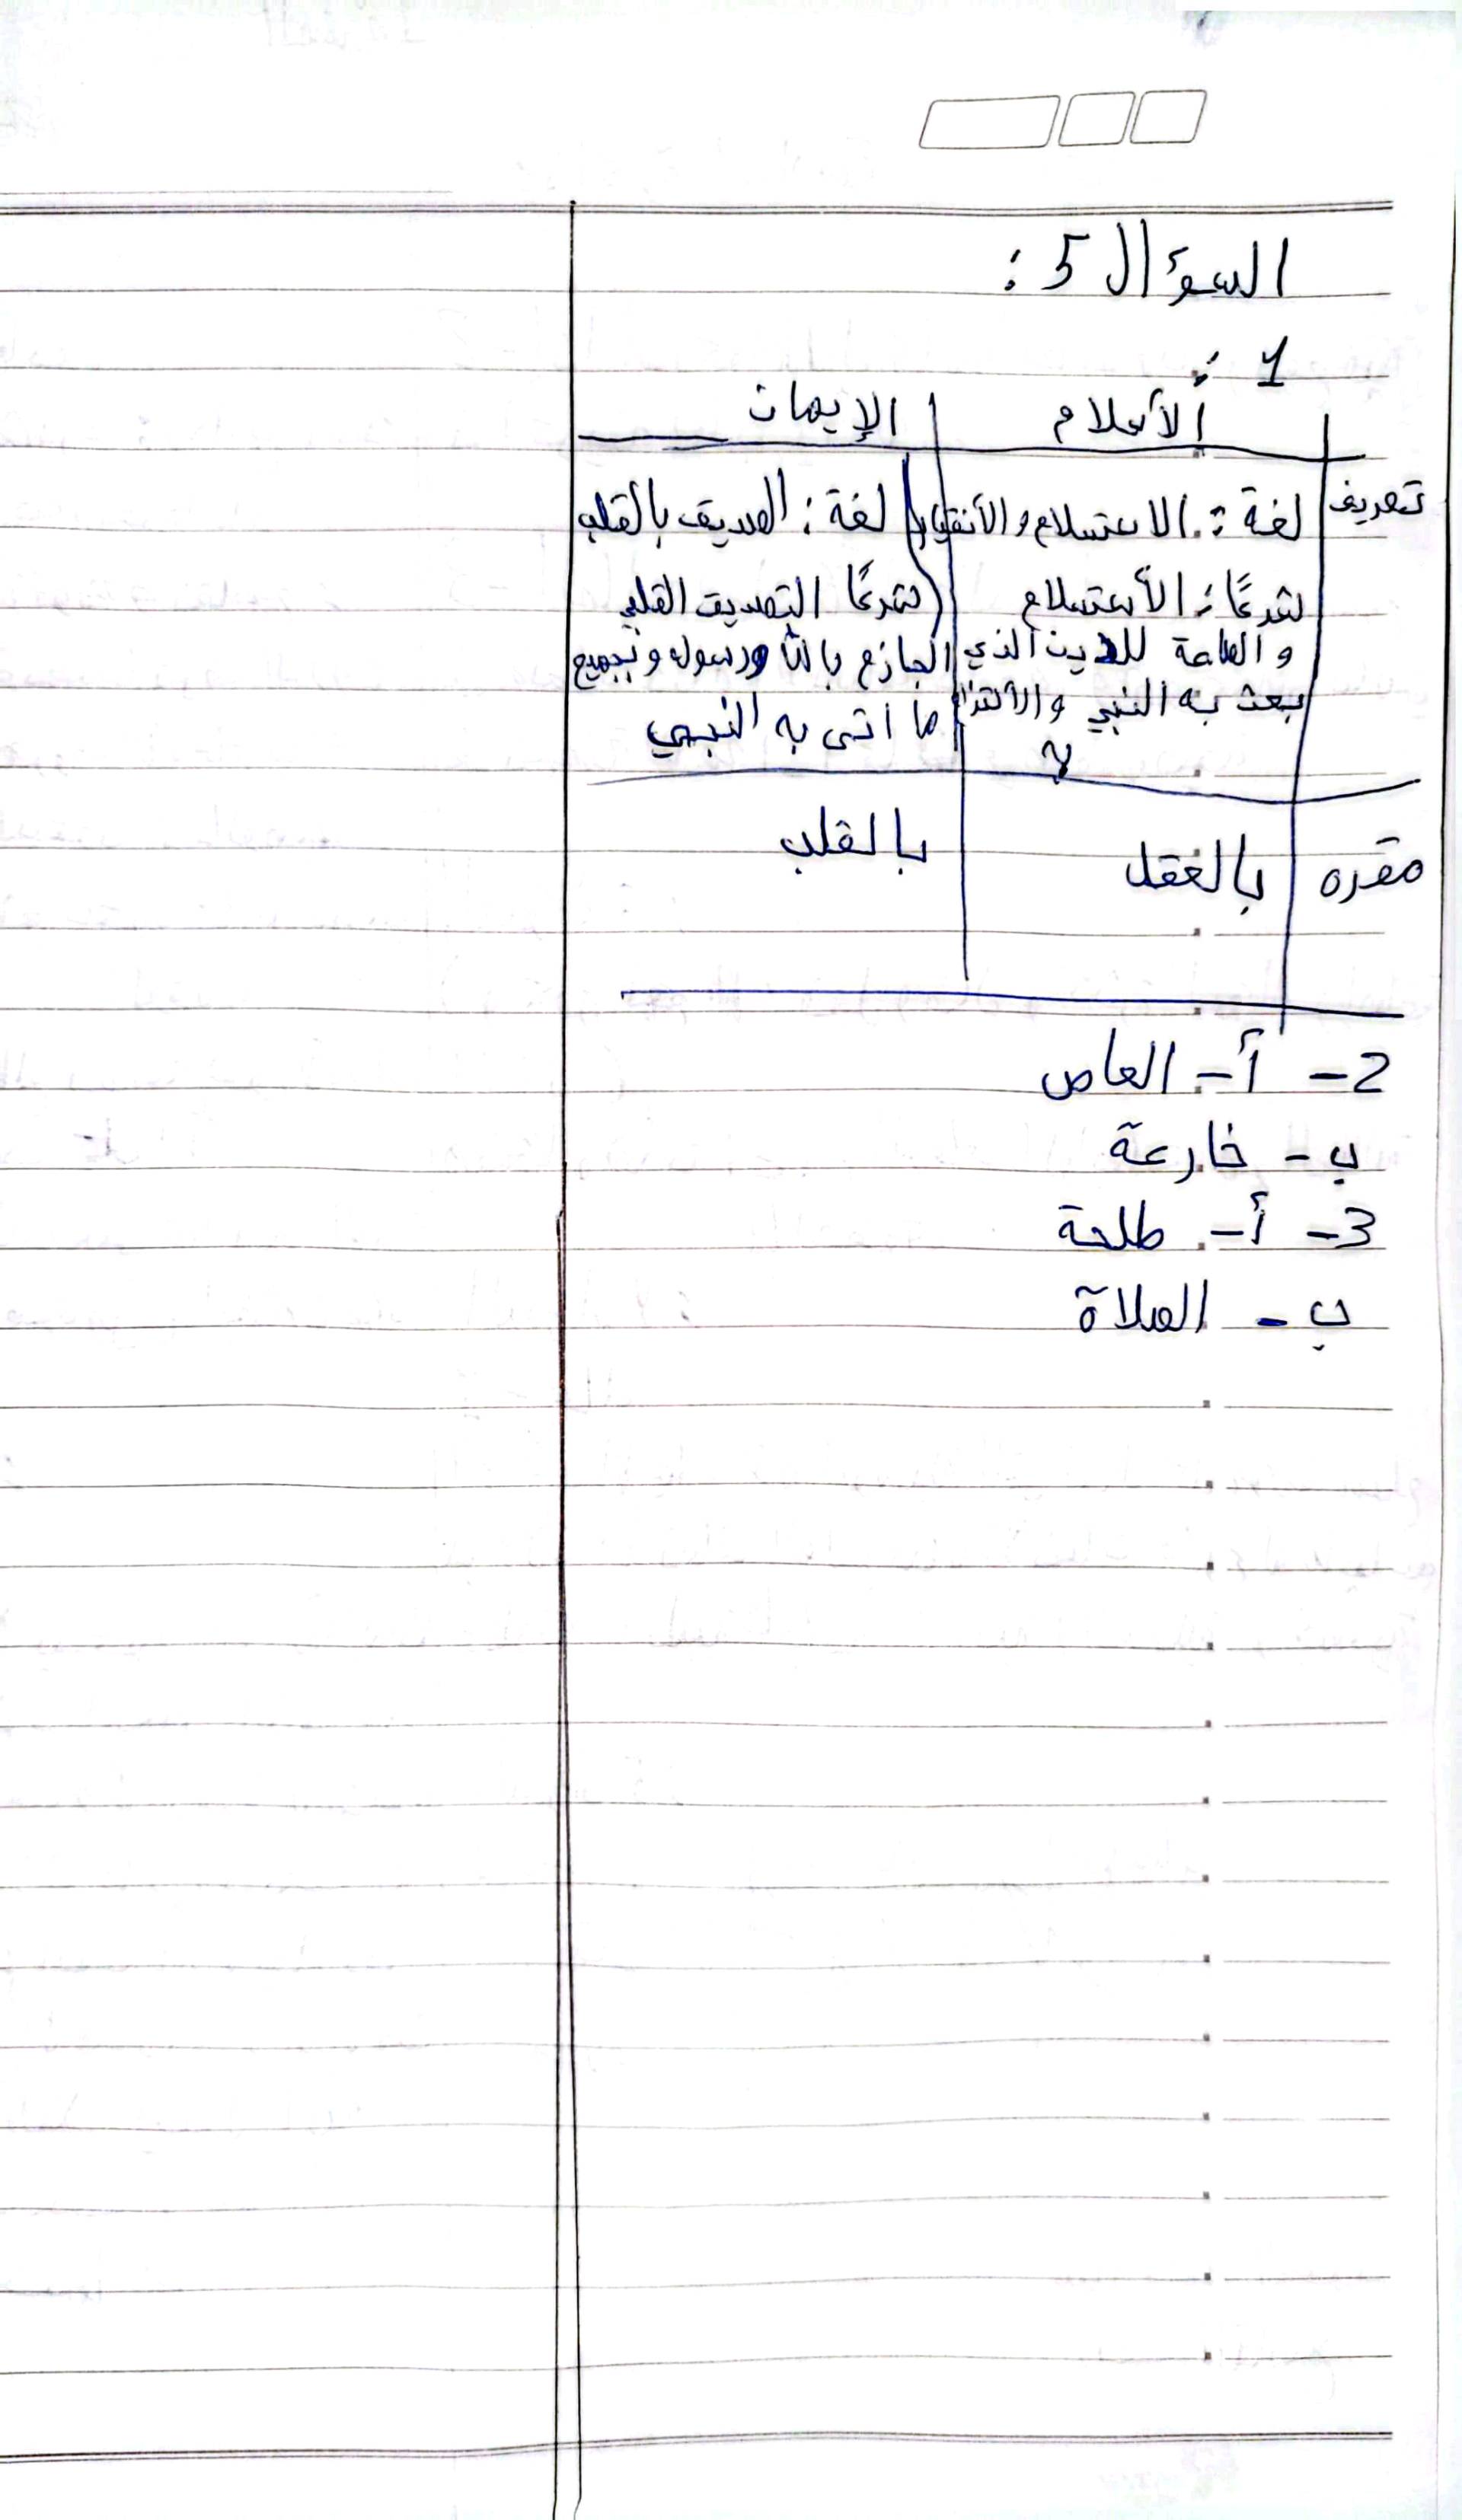 السؤال 5 :
1 :
الأسلام الإيمان
تعريف لغة : الاستسلام والأنقياد لغة : الصديق بالقلب
شرعًا : الأستسلام شرعًا التصديق القلبي
والطاعة للدين الذي الجازم بالله ورسوله وبجميع
بعث به النبي والألتزام ما اتى به النبي
به
مقره بالعقل بالقلب
2 - أ - العاص
ب - خارعة
3 - أ - طلحة
ب - الصلاة